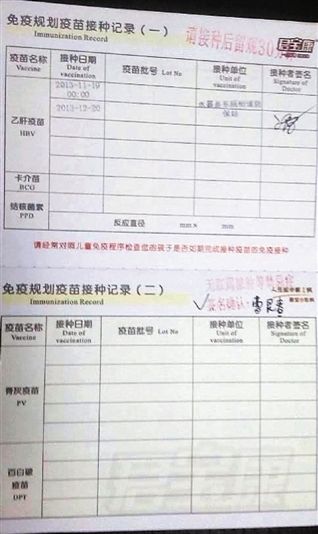 免疫规划疫苗接种记录(一)
Immunization Record
请接种后留观30分
疫苗名称 接种日期 疫苗批号 Lot No 接种单位 接种者签名
Vaccine Date of vaccination Unit of vaccination Signature of Doctor
乙肝疫苗
HBV
2013-11-19
00:00
2013-12-20
保站
卡介苗
BCG
结核菌素
PPD
反应直径 mm × mm
请经常对照儿童免疫程序检查您的孩子是否如期完成接种疫苗的免疫接种
免疫规划疫苗接种记录(二)
Immunization Record
签名确认:
疫苗名称 接种日期 疫苗批号 Lot No 接种单位 接种者签名
Vaccine Date of vaccination Unit of vaccination Signature of Doctor
脊灰疫苗
PV
百白破
疫苗
DPT